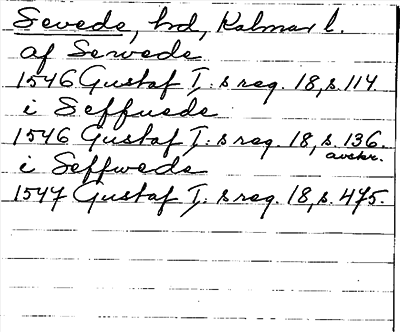 Sevede, hd, Kalmar l.
af Serwede
1546 Gustaf I:s reg. 18, s. 114
i Seffuede
1546 Gustaf I:s reg. 18, s. 136.
avskr.
i Seffwede
1547 Gustaf I:s reg. 18, s. 475.